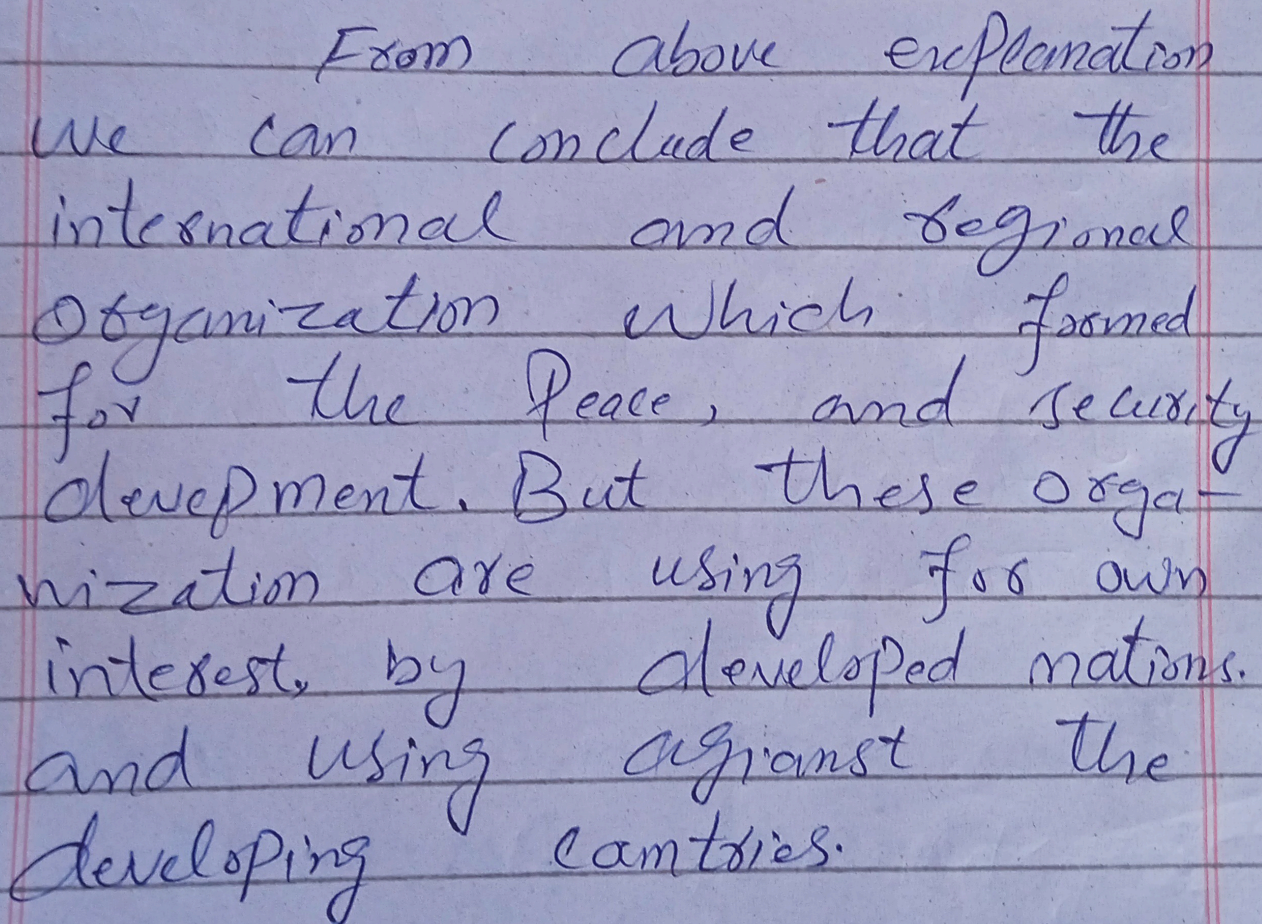 From above explanation
we can conclude that the
international and regional
organization which formed
for the Peace, and security
devepment. But these orga-
nization are using for own
interest, by developed nations.
and using agianst the
developing camtries.